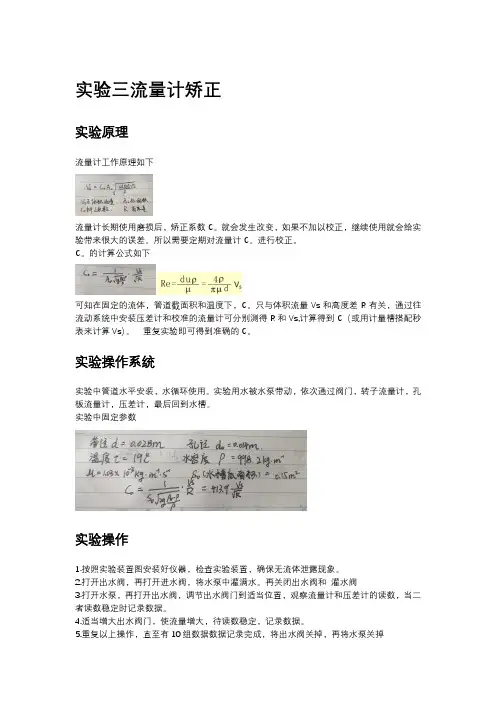 实验三流量计矫正
实验原理
流量计工作原理如下
流量计长期使用磨损后，矫正系数 C。就会发生改变，如果不加以校正，继续使用就会给实
验带来很大的误差。所以需要定期对流量计 C。进行校正。
C。的计算公式如下
Re=duρ/μ=4ρ/πμd Vs
可知在固定的流体，管道截面积和温度下，C。只与体积流量 Vs 和高度差 R 有关，通过往
流动系统中安装压差计和校准的流量计可分别测得 R 和 Vs,计算得到 C（或用计量槽搭配秒
表来计算 Vs）。 重复实验即可得到准确的 C。
实验操作系统
实验中管道水平安装，水循环使用。实验用水被水泵带动，依次通过阀门，转子流量计，孔
板流量计，压差计，最后回到水槽。
实验中固定参数
管径 d=0.028m 孔径 d₀=0.014m
温度 t=19℃ 水密度 ρ=998.2kg·m⁻³
实验操作
1.按照实验装置图安装好仪器，检查实验装置，确保无流体泄露现象。
2.打开出水阀，再打开进水阀，将水泵中灌满水。再关闭出水阀和 灌水阀
3.打开水泵，再打开出水阀，调节出水阀门到适当位置，观察流量计和压差计的读数，当二
者读数稳定时记录数据。
4.适当增大出水阀门，使流量增大，待读数稳定，记录数据。
5.重复以上操作，直至有 10 组数据数据记录完成，将出水阀关掉，再将水泵关掉